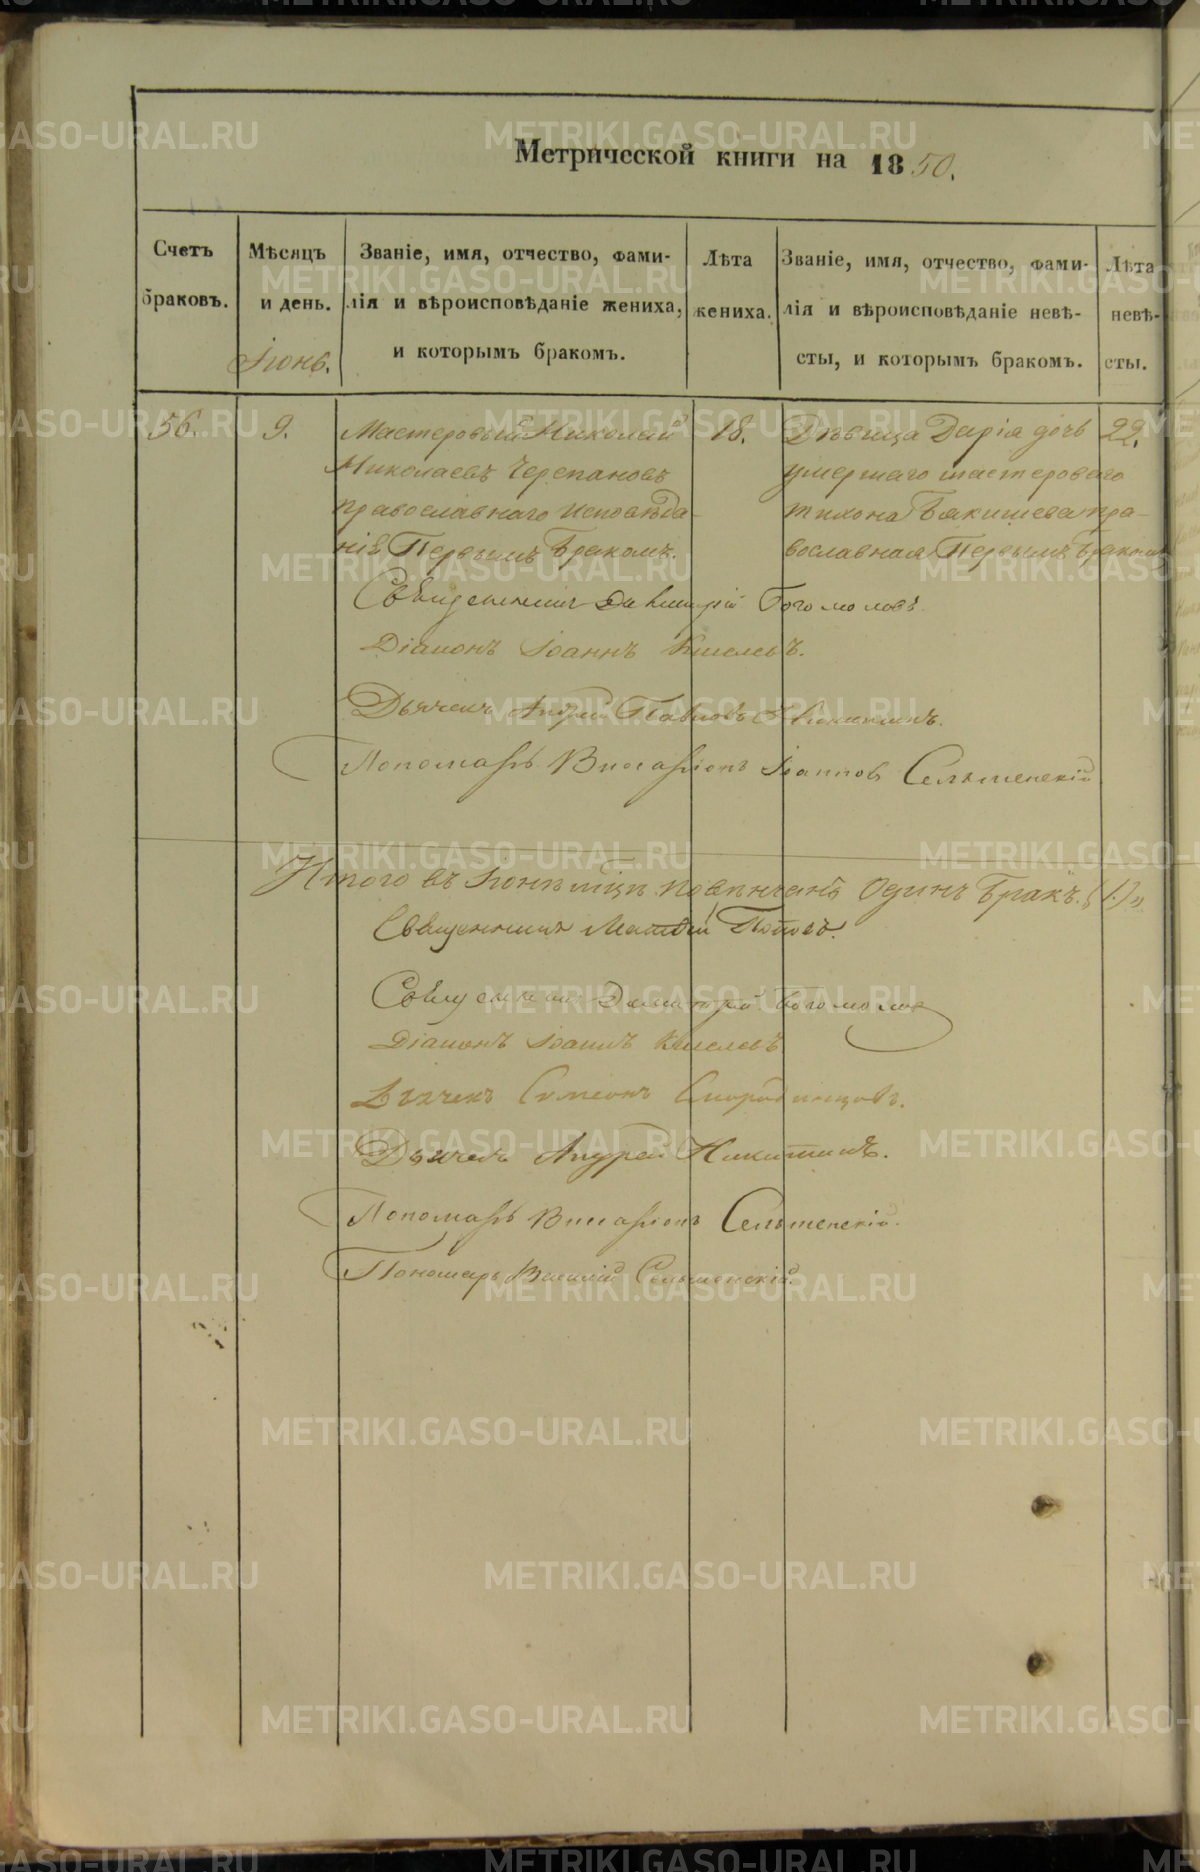 Метрической книги на 1850.
Счетъ браковъ.
Мѣсяцъ и день.
Іюнь.
Званіе, имя, отчество, фами-
лія и вѣроисповѣданіе жениха,
и которымъ бракомъ.
Лѣта жениха.
Званіе, имя, отчество, фами-
лія и вѣроисповѣданіе невѣ-
сты, и которымъ бракомъ.
Лѣта невѣ-
сты.
56.
9.
Мастеровый Николай
Николаевъ Черепановъ
православнаго исповѣда-
нія Первымъ бракомъ.
18.
Дѣвица Дарія дочь
умершаго мастероваго
тихона Бякишева пра-
вославная Первымъ бракомъ
22.
Священникъ Димитрій Богомоловъ.
Діаконъ Іоаннъ Киселевъ.
Дьячекъ Андрей Павловъ Никитинъ.
Пономарь Виссаріонъ Іоанновъ Сельменскій
Итого въ Іюнѣ мцѣ повѣнчанъ Одинъ бракъ. (1.)
Священникъ Матвей Поповъ.
Священникъ Димитрій Богомоловъ
Діаконъ Іоаннъ Киселевъ
Дьячекъ Симеонъ Скородинцовъ.
Дьячекъ Андрей Никитинъ.
Пономарь Виссаріонъ Сельменскій.
Пономарь Василій Сельменскій.
METRIKI.GASO-URAL.RU